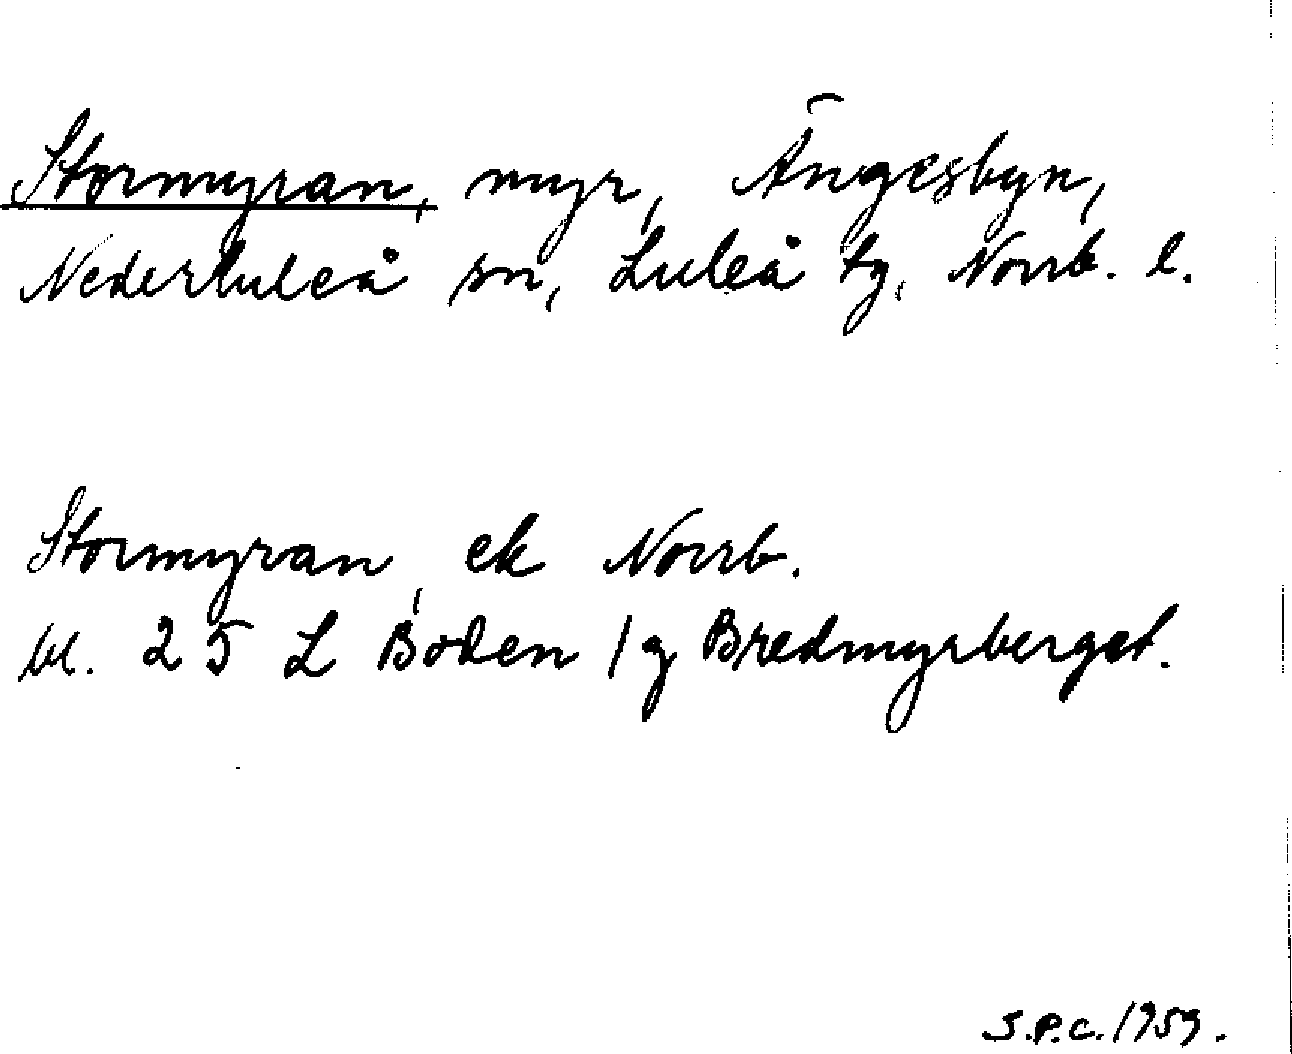 Stormyran, myr, Ängesbyn,
Nederluleå sn, Luleå tg, Norrb. l.
Stormyran, ek Norrb.
bl. 25 L Boden / g Bredmyrberget.
S.P.C. 1959.